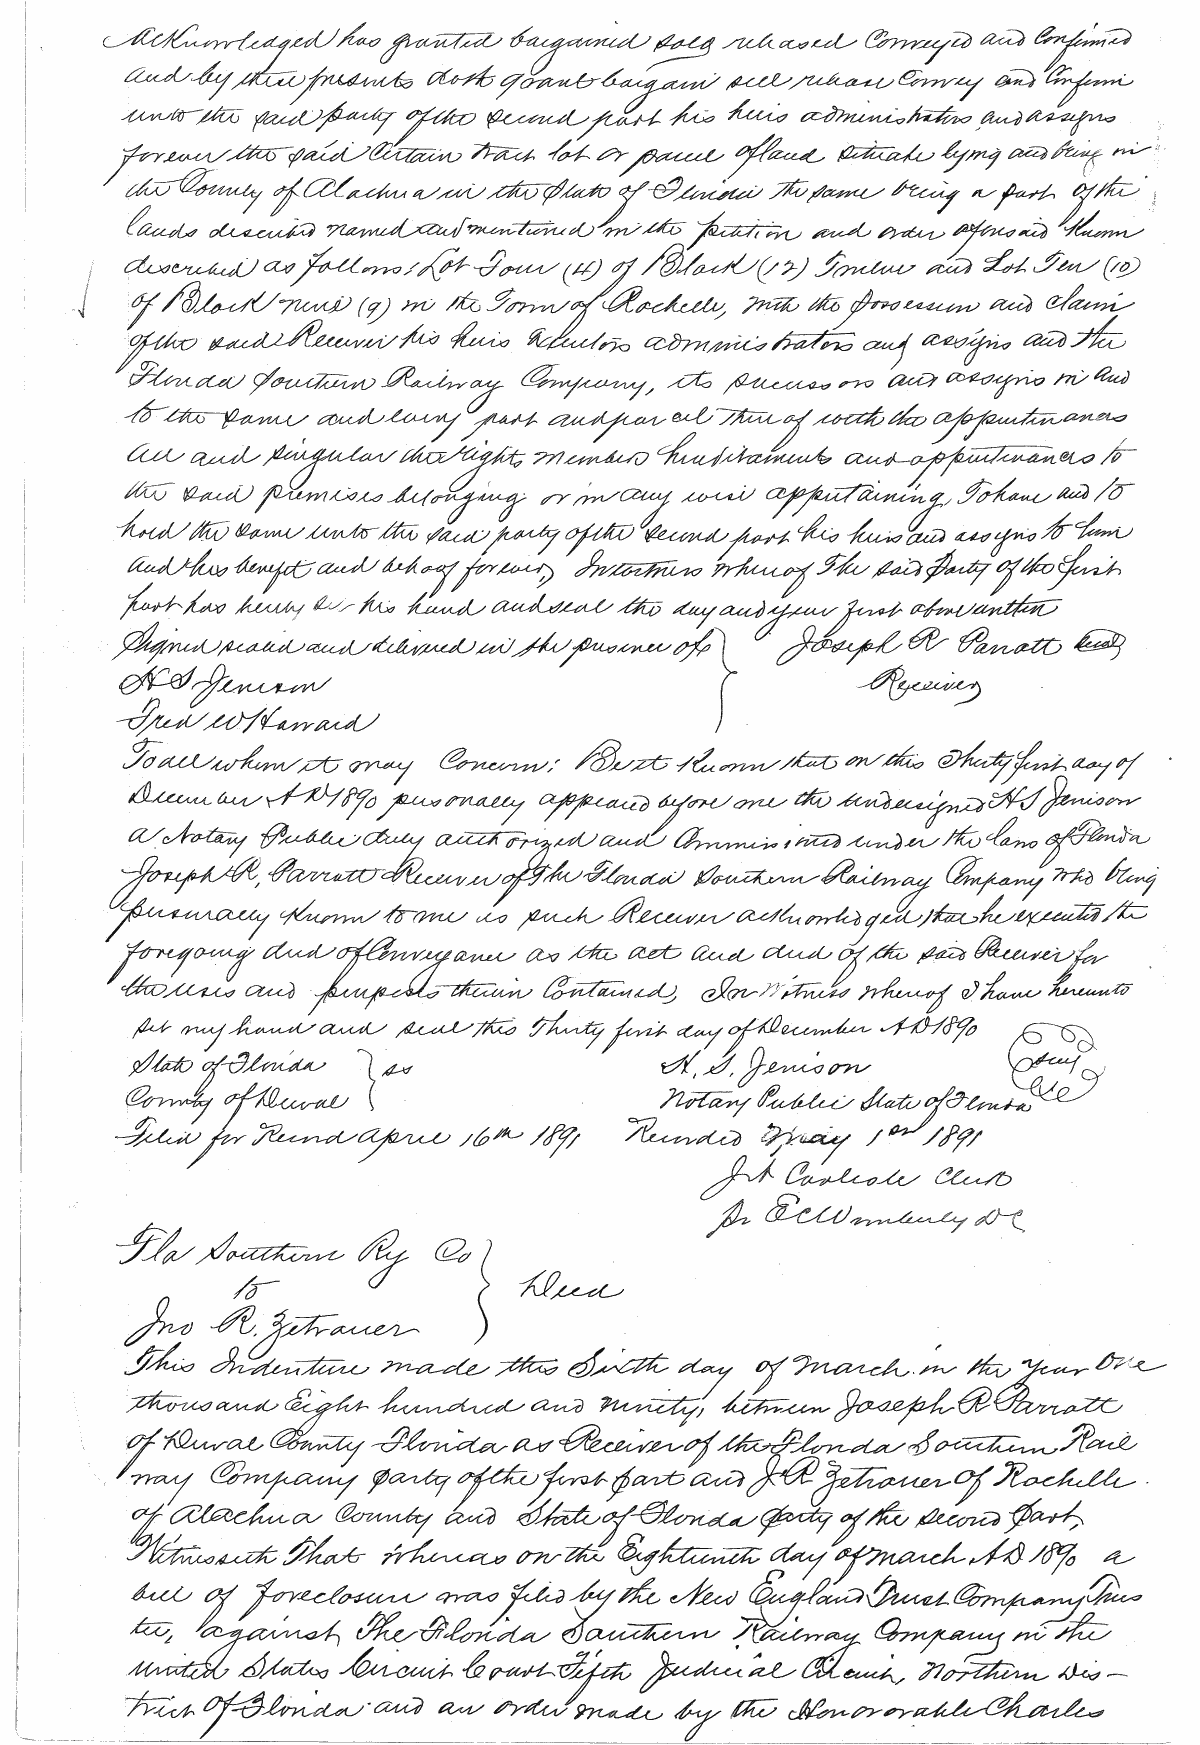 Acknowledged has granted bargained sold released Conveyed and Confirmed
and by these presents doth grant bargain sell release Convey and Confirm
unto the said party of the second part his heirs administrators and assigns
forever the said Certain tract lot or parcel of land situate lying and being in
the County of Alachua in the State of Florida the same being a part of the
lands described named and mentioned in the petition and order aforesaid Known
described as follows: Lot Four (4) of Block (12) Twelve and Lot Ten (10)
of Block nine (9) in the Town of Rochelle, with the possession and claim
of the said Receiver his heirs Executors administrators and assigns and the
Florida Southern Railway Company, its successors and assigns in and
to the same and every part and parcel thereof with the appurtenances
all and singular the rights members hereditaments and appurtenances to
the said premises belonging or in any wise appertaining, To have and to
hold the same unto the said party of the second part his heirs and assigns to him
and his benefit and behoof forever, In witness whereof The said Party of the first
part has hereby set his hand and seal the day and year first above written
Signed sealed and delivered in the presence of } Joseph R Parrott Seal
H S Jenison Receiver
Fred W Howard
To all whom it may Concern: Be it Known that on this Thirty first day of
December AD 1890 personally appeared before me the undersigned H S Jenison
a Notary Public duly authorized and Commissioned under the laws of Florida
Joseph R, Parrott Receiver of The Florida Southern Railway Company who being
personally Known to me as such Receiver acknowledged that he executed the
foregoing deed of Conveyance as the act and deed of the said Receiver for
the uses and purposes therein Contained, In Witness whereof I have hereunto
set my hand and seal this Thirty first day of December AD 1890
State of Florida } ss H. S. Jenison Seal
County of Duval Notary Public State of Florida
Filed for Record April 16th 1891 Recorded May 1st 1891
Carlisle Clerk
E C Wimberly DC
Fla Southern Ry Co }
to } Deed
Jno R. Zetrouer
This Indenture made this Sixth day of March in the Year One
thousand Eight hundred and ninety, between Joseph R Parrott
of Duval County Florida as Receiver of the Florida Southern Rail
way Company party of the first part and J R Zetrouer Of Rochelle
of Alachua County and State of Florida party of the second part,
Witnesseth That whereas on the Eighteenth day of March AD 1890 a
bill of foreclosure was filed by the New England Trust Company Trus
tee, against The Florida Southern Railway Company in the
United States Circuit Court Fifth Judicial Circuit, Northern Dis-
trict Of Florida and an order made by the Honororable Charles